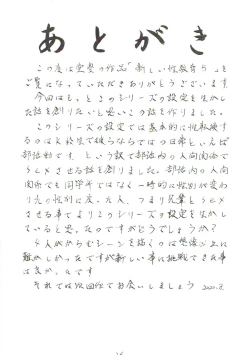 あとがき
この度は空想の作品「新しい性教育5」を
ご覧になっていただきありがとうございます
今回はもっとこのシリーズの設定を生かし
た話を創りたいと思いこの話を作りました。
このシリーズの設定では基本的に性転換す
るのは高校生で彼らならではの世界といえば
部活動です という訳で部活内の人間関係で
させる話を創りました。部活内の人
間関係でも同学年ではなく一時的に性別が変わ
りたの性別に戻った人、つまり先輩と
させる事でよりこのシリーズの設定を生かし
ていると思ったのですがどうでしょうか?
4人がからむシーンを描くのは想像以上に
難しかったですが新しい事に挑戦できた事
は良かったです
それでは次回作でお会いしましょう